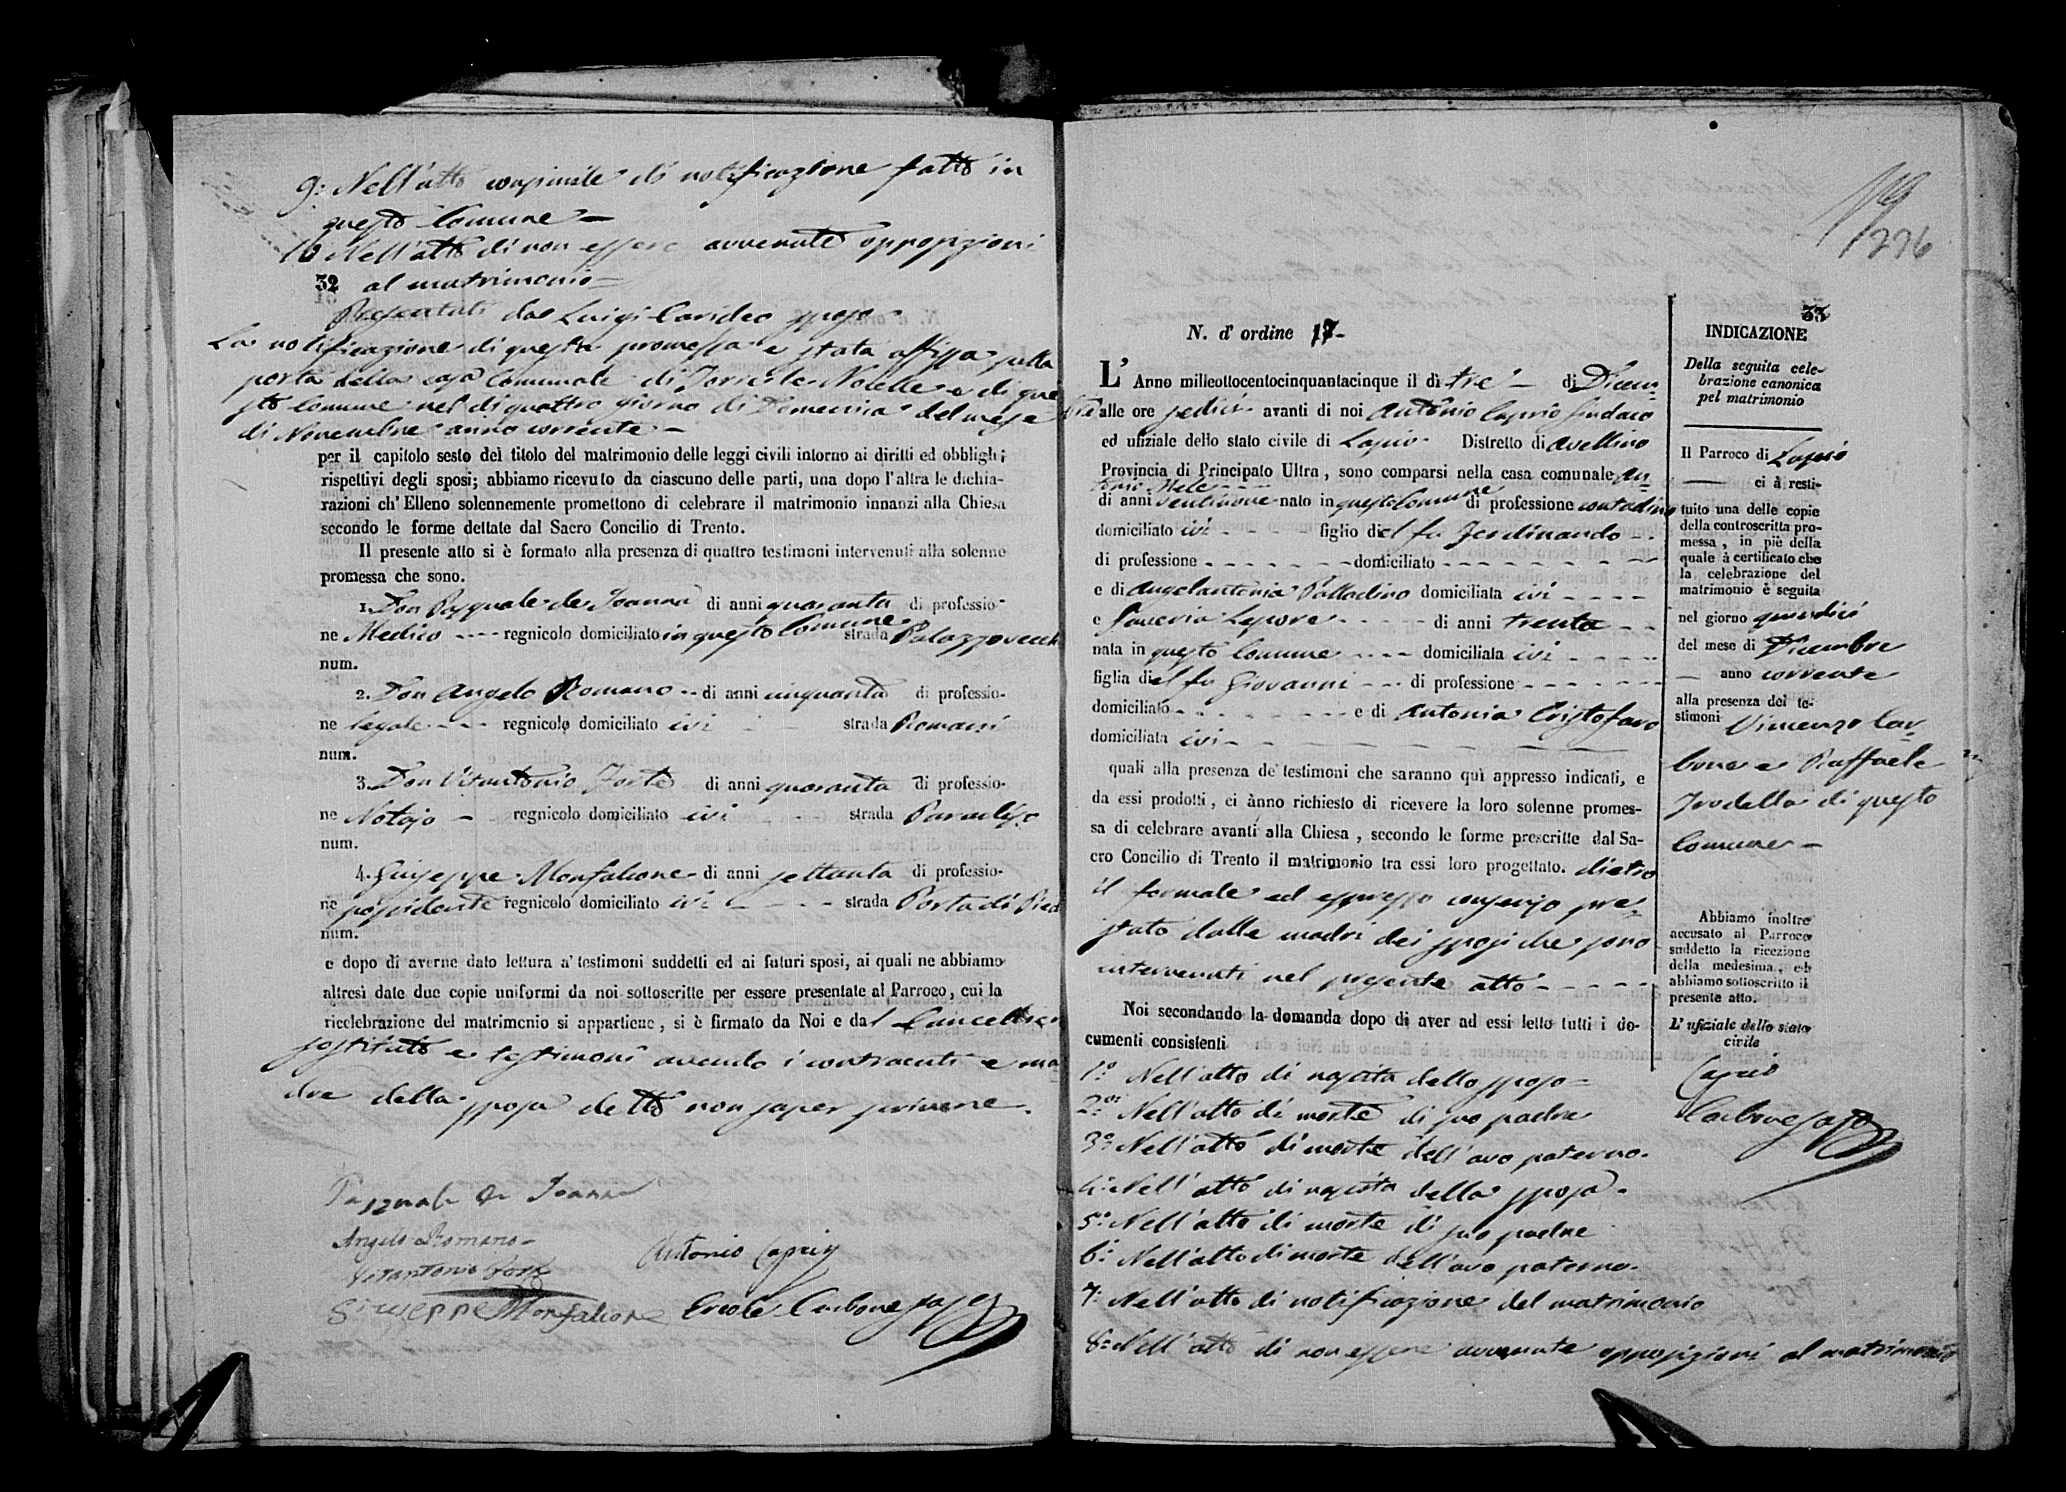 9: Nell'atto consimile di notificazione fatto in
questo Comune
10 Nell'atto di non essere avvenute opposizioni
32 al matrimonio
Presentati da Luigi Carideo sposo
La notificazione di questa promessa e stata affissa sulla
porta della casa Comunale di Torre le Nocelle e di que
sto Comune nel di quattro giorno di Domenica del mese
di Novembre anno corrente
per il capitolo sesto del titolo del matrimonio delle leggi civili intorno ai diritti ed obblighi
rispettivi degli sposi; abbiamo ricevuto da ciascuno delle parti, una dopo l'altra le dichia-
razioni ch' Elleno solennemente promettono di celebrare il matrimonio innanzi alla Chiesa
secondo le forme dettate dal Sacro Concilio di Trento.
Il presente atto si è formato alla presenza di quattro testimoni intervenuti alla solenne
promessa che sono.
1. Don Pasquale de Joanna di anni quaranta di professio-
ne Medico regnicolo domiciliato in questo Comune strada Palazzovecch
num.
2. Don Angelo Romano di anni cinquanta di professio-
ne legale regnicolo domiciliato ivi strada Romani
num.
3. Don Vitantonio Forte di anni quaranta di professio-
ne Notajo regnicolo domiciliato ivi strada Paradiso
num.
4. Giuseppe Monfalcone di anni settanta di professio-
ne possidente regnicolo domiciliato ivi strada Porta di
num.
e dopo di averne dato lettura a' testimoni suddetti ed ai futuri sposi, ai quali ne abbiamo
altresì date due copie uniformi da noi sottoscritte per essere presentate al Parroco, cui la
ricelebrazione del matrimonio si appartiene, si è firmato da Noi e dal Cancelliere
sostituto e testimoni avendo i contraenti e ma
dre della sposa detto non saper scrivere.
Pasquale de Joanna
Angelo Romano
Vitantonio Forte
Antonio Caprio
Giuseppe Monfalcone Ercole Carbone
226
33
N. d' ordine 17
L' Anno milleottocentocinquantacinque il dì tre di Dicem-
bre alle ore sedici avanti di noi Antonio Caprio Sindaco
ed ufiziale dello stato civile di Lapio Distretto di Avellino
Provincia di Principato Ultra, sono comparsi nella casa comunale An-
tonio Mele
di anni ventinove nato in questo Comune di professione contadino
domiciliato ivi figlio del fu Ferdinando
di professione domiciliato
e di Angelantonia Palladino domiciliata ivi
e Saveria Lepore di anni trenta
nata in questo Comune domiciliata ivi
figlia del fu Giovanni di professione
domiciliato e di Antonia Cristofaro
domiciliata ivi
quali alla presenza de' testimoni che saranno quì appresso indicati, e
da essi prodotti, ci ànno richiesto di ricevere la loro solenne promes-
sa di celebrare avanti alla Chiesa, secondo le forme prescritte dal Sa-
cro Concilio di Trento il matrimonio tra essi loro progettato. dietro
il formale ed espresso consenso pre-
stato dalle madri dei sposi che sono
intervenuti nel presente atto
Noi secondando la domanda dopo di aver ad essi letto tutti i do-
cumenti consistenti
1.º Nell'atto di nascita dello sposo
2. Nell'atto di morte di suo padre
3.º Nell'atto di morte dell'avo paterno.
4. Nell'atto di nascita della sposa.
5.º Nell'atto di morte di suo padre
6. Nell'atto di morte dell'avo paterno.
7. Nell'atto di notificazione del matrimonio
8. Nell'atto di non essere avvenute opposizioni al matrimonio
INDICAZIONE
Della seguita cele-
brazione canonica
pel matrimonio
Il Parroco di Lapio
ci à resti-
tuito una delle copie
della controscritta pro-
messa, in piè della
quale à certificato che
la celebrazione del
matrimonio è seguita
nel giorno quindici
del mese di Dicembre
anno corrente
alla presenza dei te-
stimoni Vincenzo Car-
bone e Raffaele
Trodella di questo
Comune
Abbiamo inoltre
accusato al Parroco
suddetto la ricezione
della medesima, ed
abbiamo sottoscritto il
presente atto.
L' ufiziale dello stato
civile
Caprio
Carbone